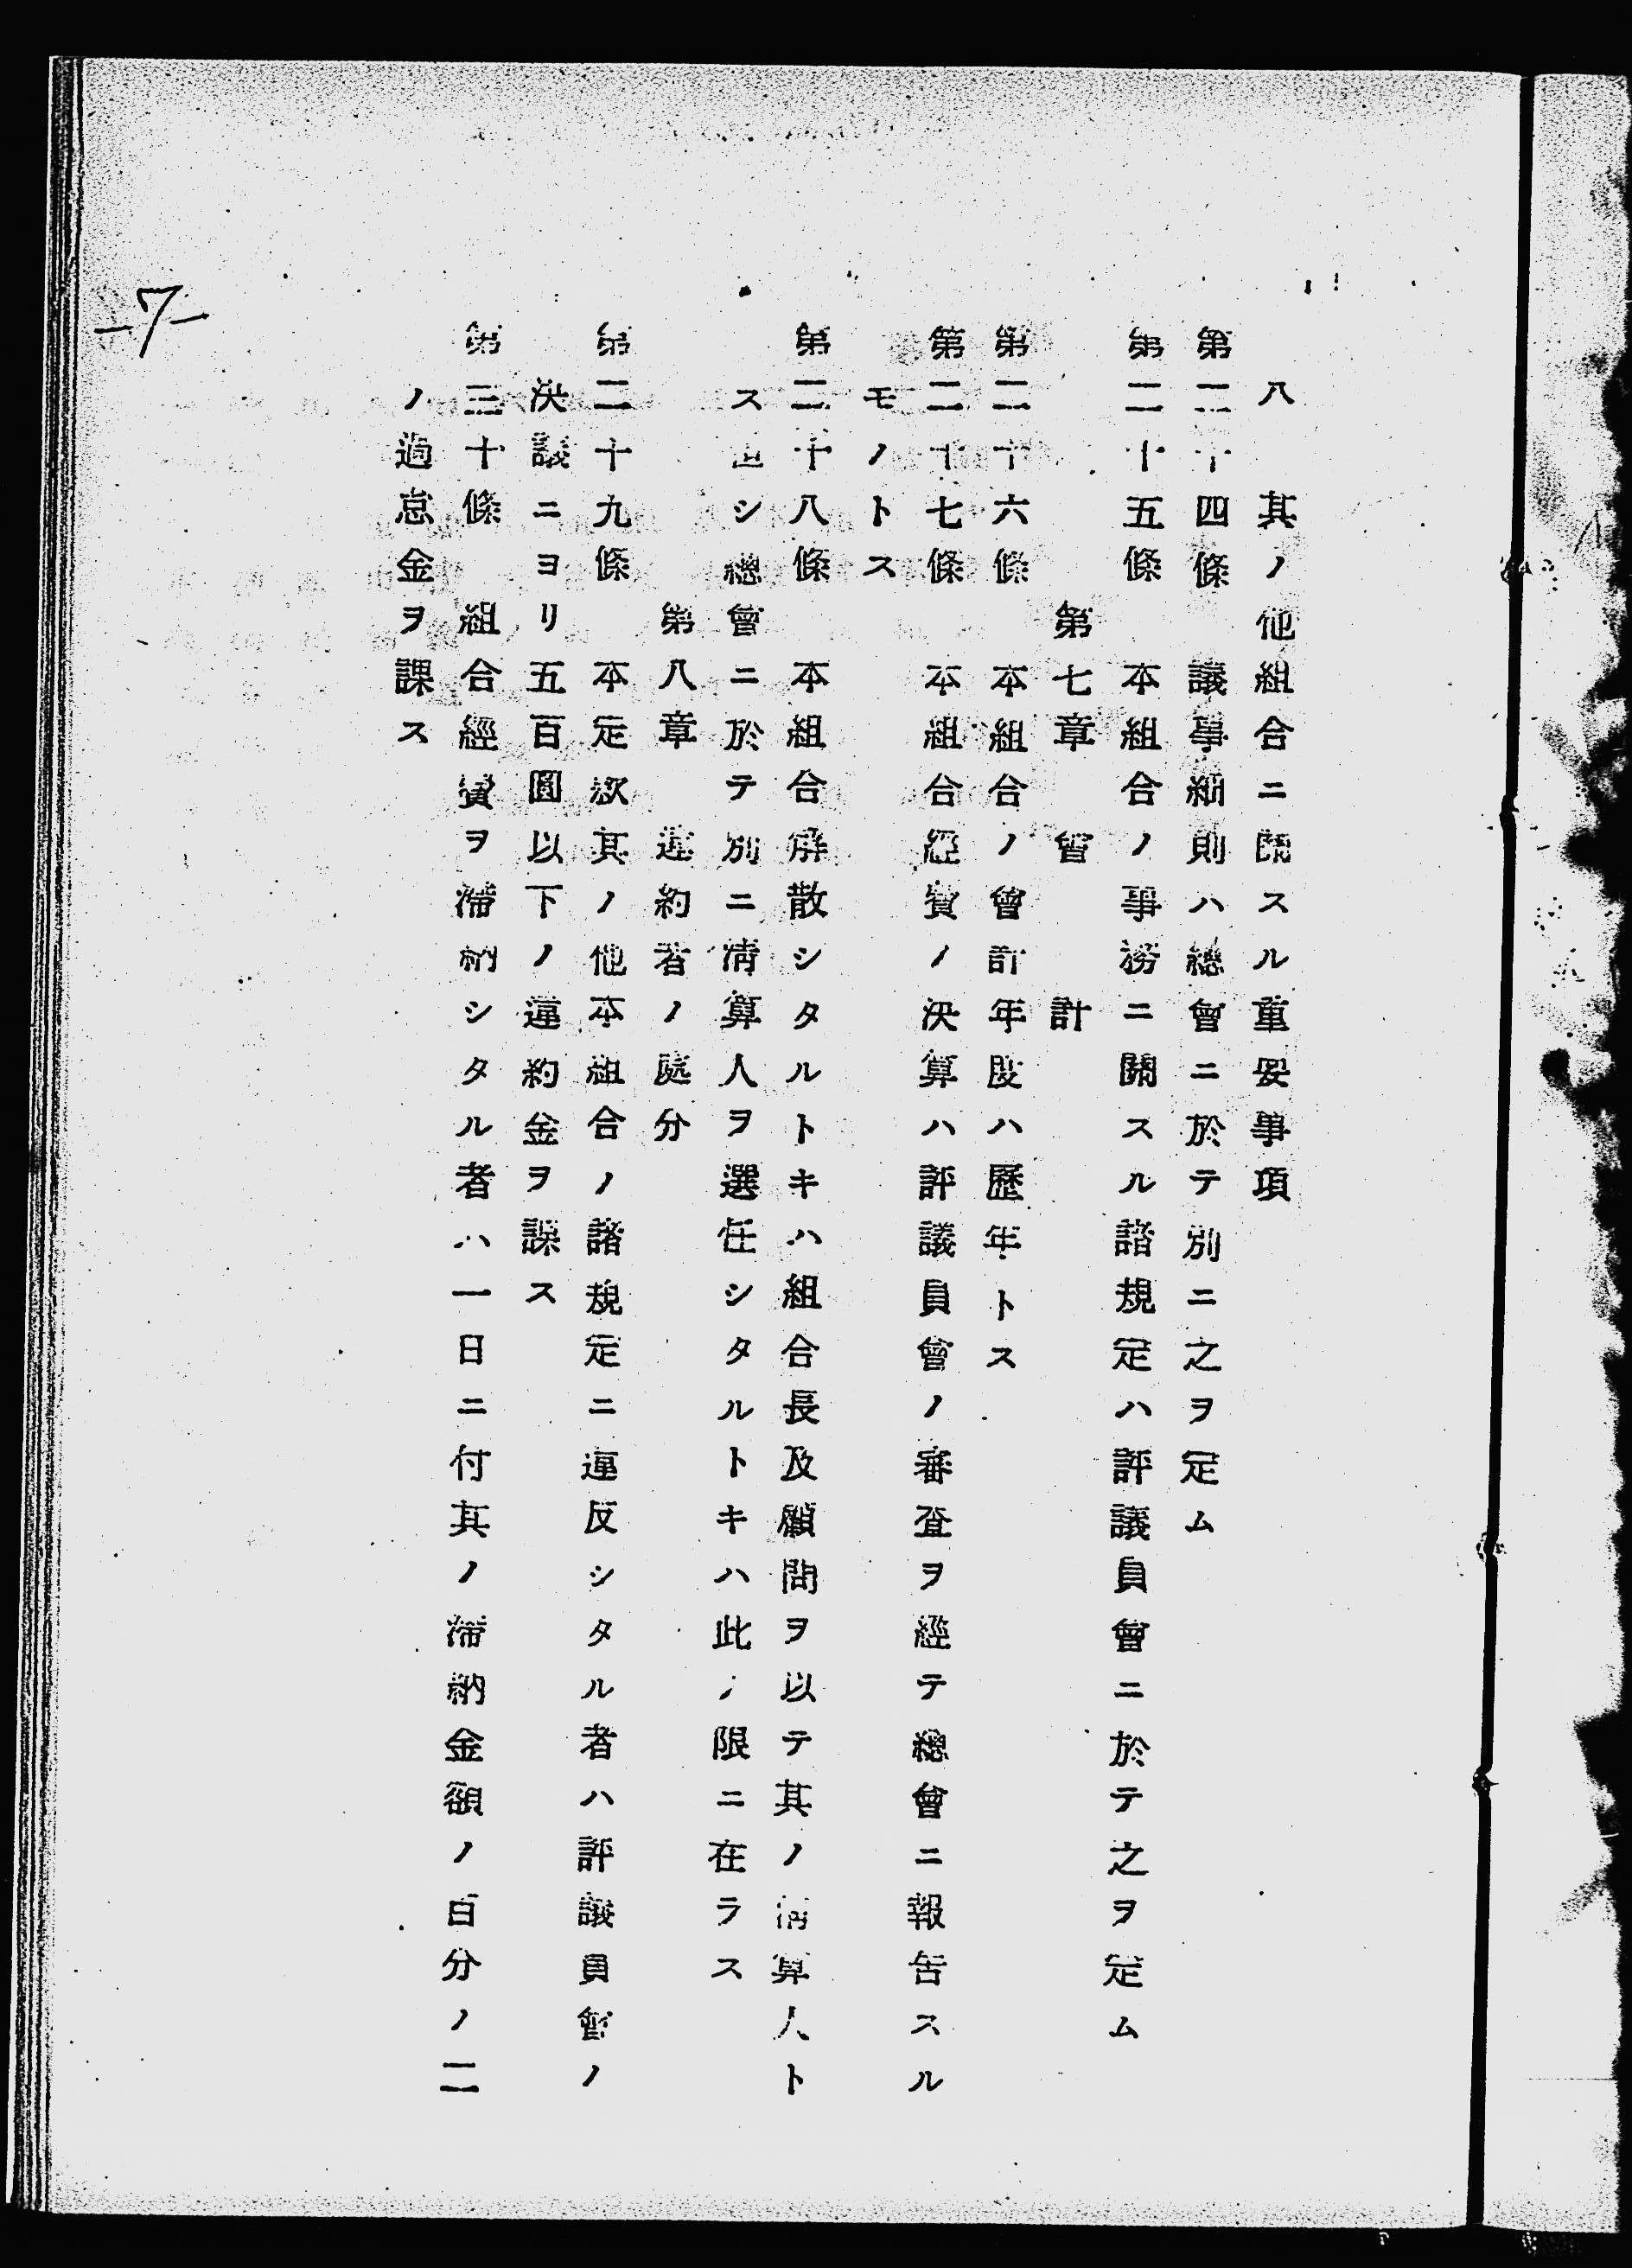 八　其ノ他組合ニ關スル重要事項
第二十四條　議事細則ハ總會ニ於テ別ニ之ヲ定ム
第二十五條　本組合ノ事務ニ關スル諸規定ハ評議員會ニ於テ之ヲ定ム
第七章　會計
第二十六條　本組合ノ會計年度ハ歷年トス
第二十七條　本組合經費ノ決算ハ評議員會ノ審査ヲ經テ總會ニ報告スル
モノトス
第二十八條　本組合解散シタルトキハ組合長及顧問ヲ以テ其ノ淸算人ト
ス但シ總會ニ於テ別ニ淸算人ヲ選任シタルトキハ此ノ限ニ在ラス
第八章　違約者ノ處分
第二十九條　本定款其ノ他本組合ノ諸規定ニ違反シタル者ハ評議員會ノ
決議ニヨリ五百圓以下ノ違約金ヲ課ス
第三十條　組合經費ヲ滯納シタル者ハ一日ニ付其ノ滯納金額ノ百分ノ二
ノ過怠金ヲ課ス
-7-